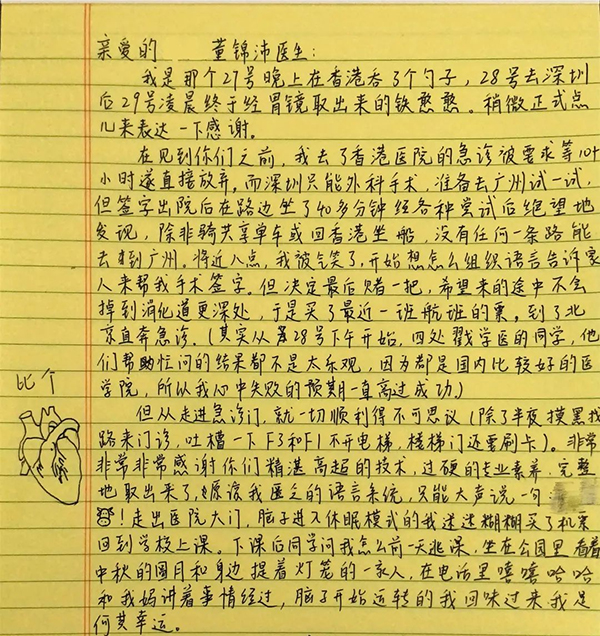 亲爱的 董锦沛医生：
我是那个27号晚上在香港吞了个勺子，28号去深圳
后29号凌晨终于经胃镜取出来的铁憨憨。稍微正式点
儿来表达一下感谢。
在见到你们之前，我去了香港医院的急诊被要求等10+
小时遂直接放弃。而深圳只能外科手术，准备去广州试一试，
但签字出院后在路边坐了40多分钟经各种尝试后绝望地
发现，除非骑共享单车或回香港坐船，没有任何一条路能
去到广州。将近八点，我被气笑了，开始想怎么组织语言告诉家
人来帮我手术签字。但决定最后赌一把，希望来的途中不会
掉到消化道更深处，于是买了最近一班航班的票。到了北
京直奔急诊。（其实从28号下午开始，四处戳学医的同学，他
们帮忙问的结果都不是太乐观，因为都是国内比较好的医
学院，所以我心中失败的预期一直高过成功）
但从走进急诊门，就一切顺利得不可思议（除了半夜摸黑找
路来门诊，吐槽一下F3和F1不开电梯，楼梯门还要刷卡）。非常
非常非常感谢你们精湛高超的技术，过硬的专业素养，完整
地取出来了，原谅我匮乏的语言系统，只能大声说一句
！走出医院大门，脑子进入休眠模式的我迷迷糊糊买了机票
回到学校上课。下课后同学问我怎么前一天逃课，坐在公园里看着
中秋的圆月和身边提着灯笼的一家人，在电话里嘻嘻哈哈
和我妈讲着事情经过，脑子开始运转的我回味过来我是
何其幸运。
比个